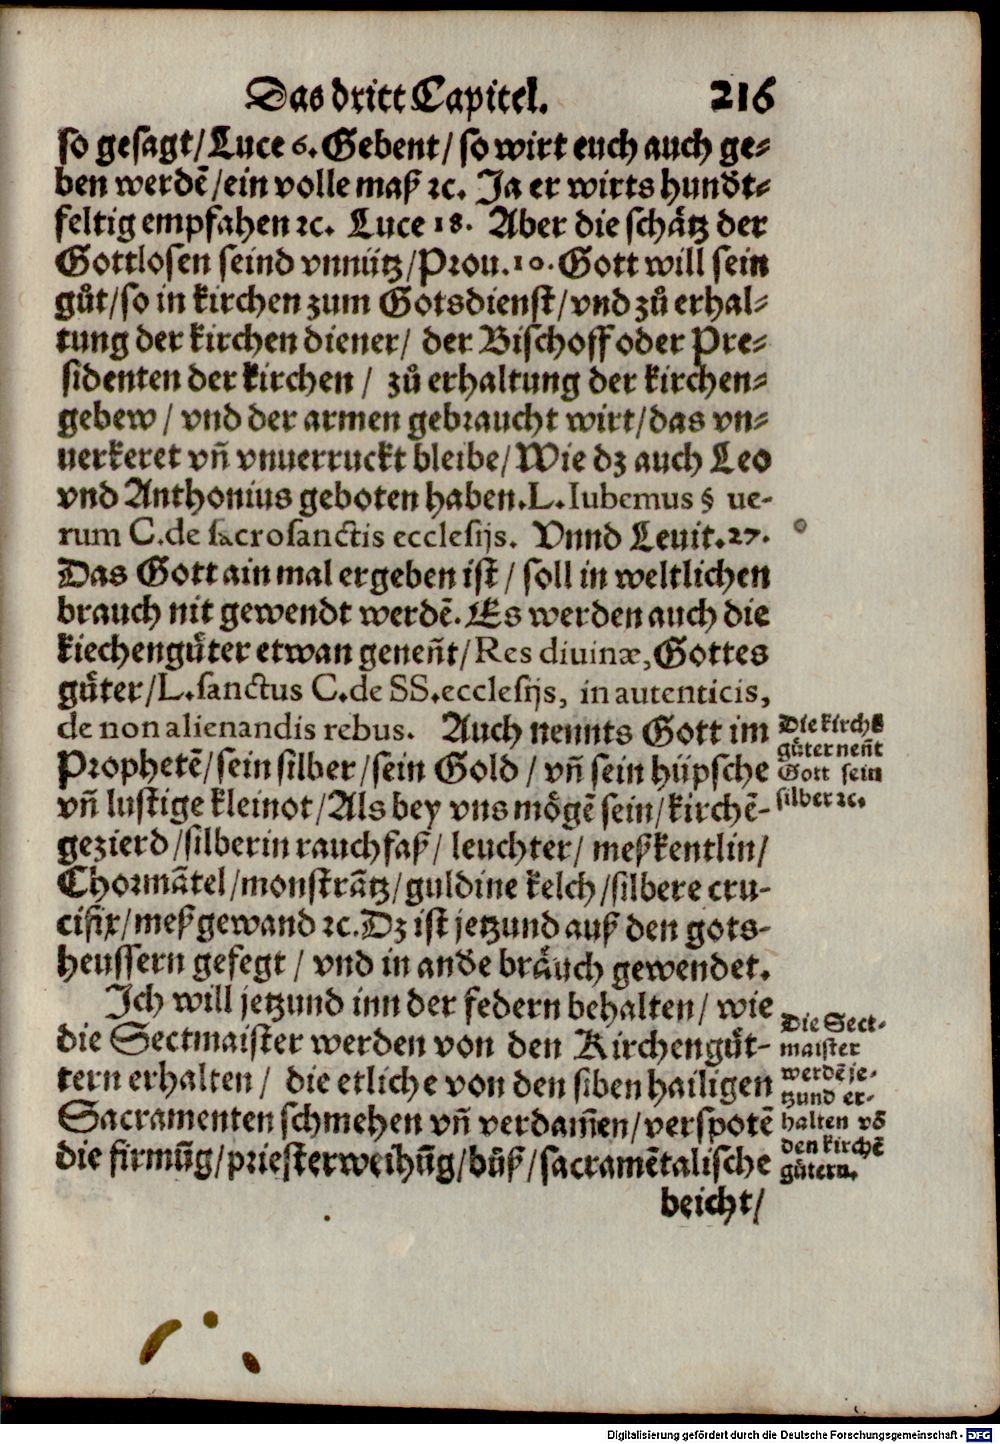 Das dritt Capitel. 216
so gesagt/Luce 6. Gebent/ so wirt euch auch ge-
ben werdē/ein volle maß ꝛc. Ja er wirts hundt-
feltig empfahen ꝛc. Luce 18. Aber die schätz der
Gottlosen seind vnnütz/Prou.10. Gott will sein
gůt/so in kirchen zum Gotsdienst/vnd zů erhal-
tung der kirchen diener/ der Bischoff oder Pre-
sidenten der kirchen / zů erhaltung der kirchen-
gebew / vnd der armen gebraucht wirt/das vn-
uerkeret vñ vnuerruckt bleibe/Wie dz auch Leo
vnd Anthonius geboten haben.L.Iubemus § ue-
rum C.de sacrosanctis ecclesijs. Vnnd Leuit.27.
Das Gott ain mal ergeben ist / soll in weltlichen
brauch nit gewendt werdē. Es werden auch die
kiechengůter etwan geneñt/Res diuinæ,Gottes
gůter/L.sanctus C.de SS.ecclesijs, in autenticis,
de non alienandis rebus. Auch nennts Gott im
Prophetē/sein silber/sein Gold / vñ sein hüpsche
vñ lustige kleinot/Als bey vns mögē sein/kirchē-
gezierd/silberin rauchfaß/ leuchter/ meßkentlin/
Chormātel/monstrātz/guldine kelch/silbere cru-
cifix/meßgewand ꝛc.Dz ist jetzund auß den gots-
heussern gefegt / vnd in ande bräuch gewendet.
Ich will jetzund inn der federn behalten/ wie
die Sectmaister werden von den Kirchengůt-
tern erhalten/ die etliche von den siben hailigen
Sacramenten schmehen vñ verdam̄en/verspotē
die firmūg/priesterweihūg/bůß/sacramētalische
beicht/
Die kirchē
gůter neñt
Gott sein
silber ꝛc.
Die Sect-
maister
werdē je-
tzund er-
halten vō
den kirchē
gůtern.
Digitalisierung gefördert durch die Deutsche Forschungsgemeinschaft - DFG